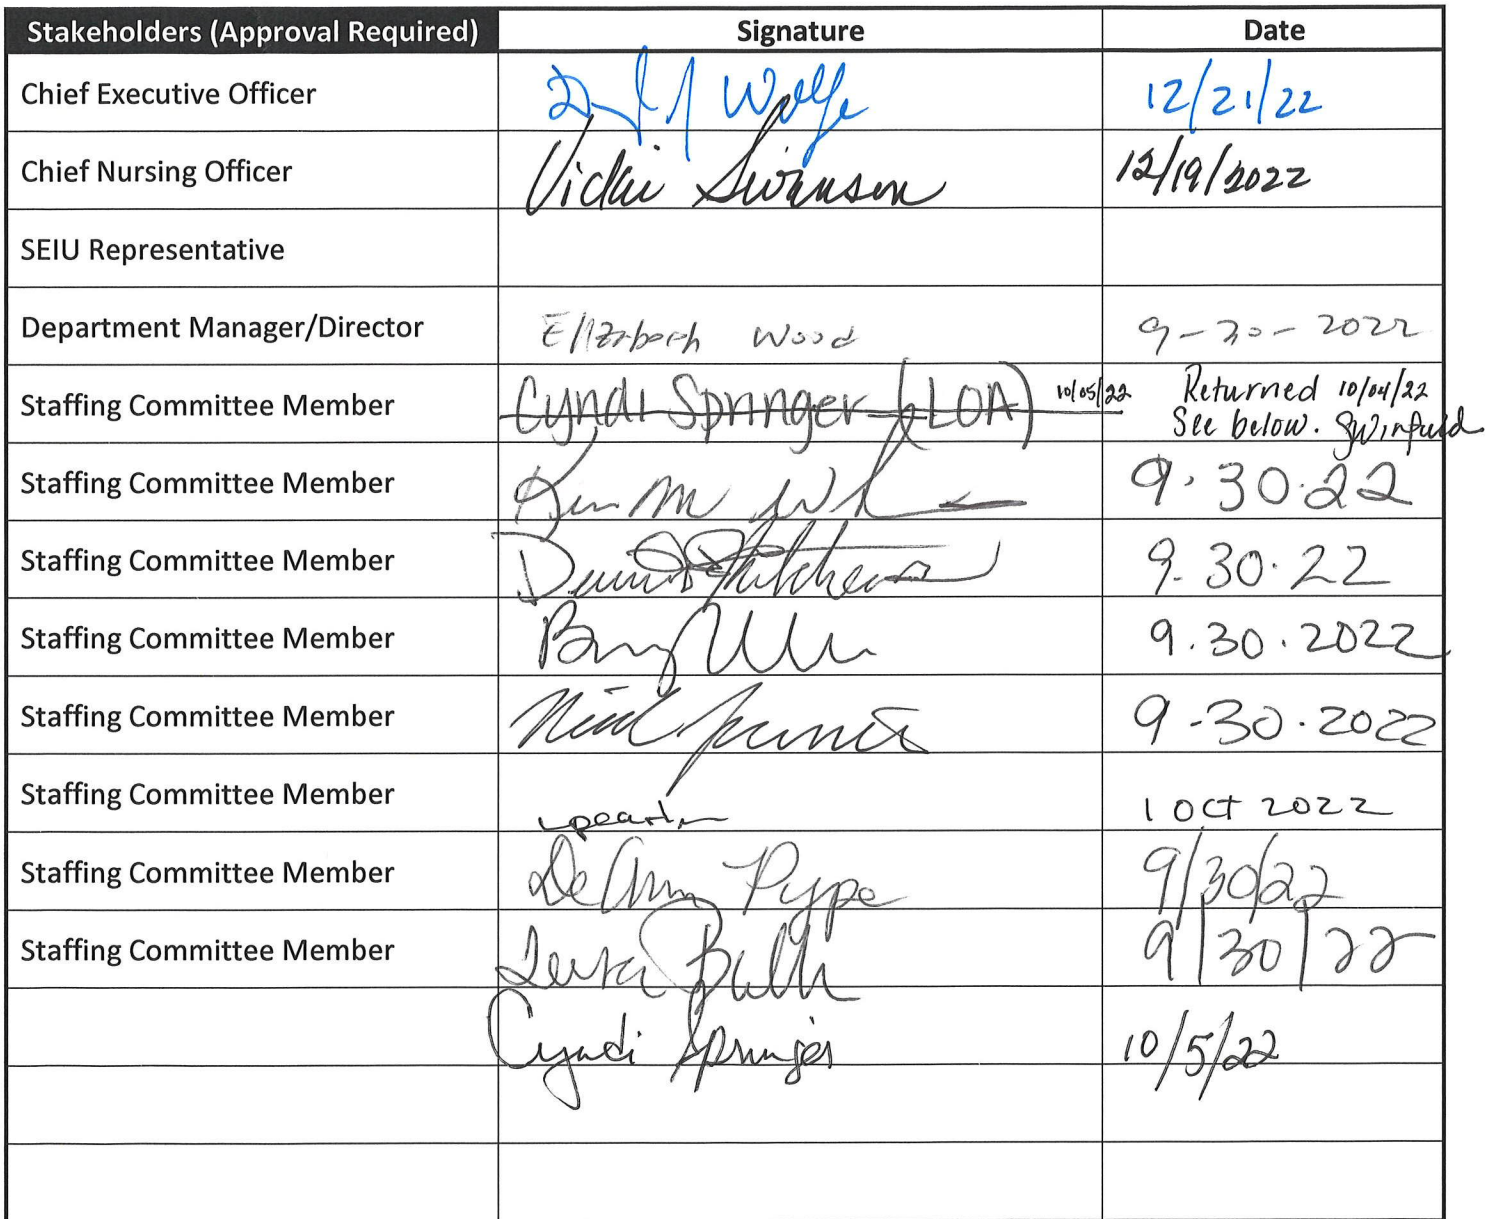 Stakeholders (Approval Required) Signature Date
Chief Executive Officer Wolfe 12/21/22
Chief Nursing Officer Vicki Swanson 12/19/2022
SEIU Representative
Department Manager/Director Elizabeth Wood 9-30-2022
Staffing Committee Member Cyndi Springer (LOA) 10/05/22 Returned 10/04/22
See below.
Staffing Committee Member 9.30.22
Staffing Committee Member 9.30.22
Staffing Committee Member 9.30.2022
Staffing Committee Member 9-30.2022
Staffing Committee Member 1 OCT 2022
Staffing Committee Member DeAnn Pype 9/30/22
Staffing Committee Member 9/30/22
Cyndi Springer 10/5/22